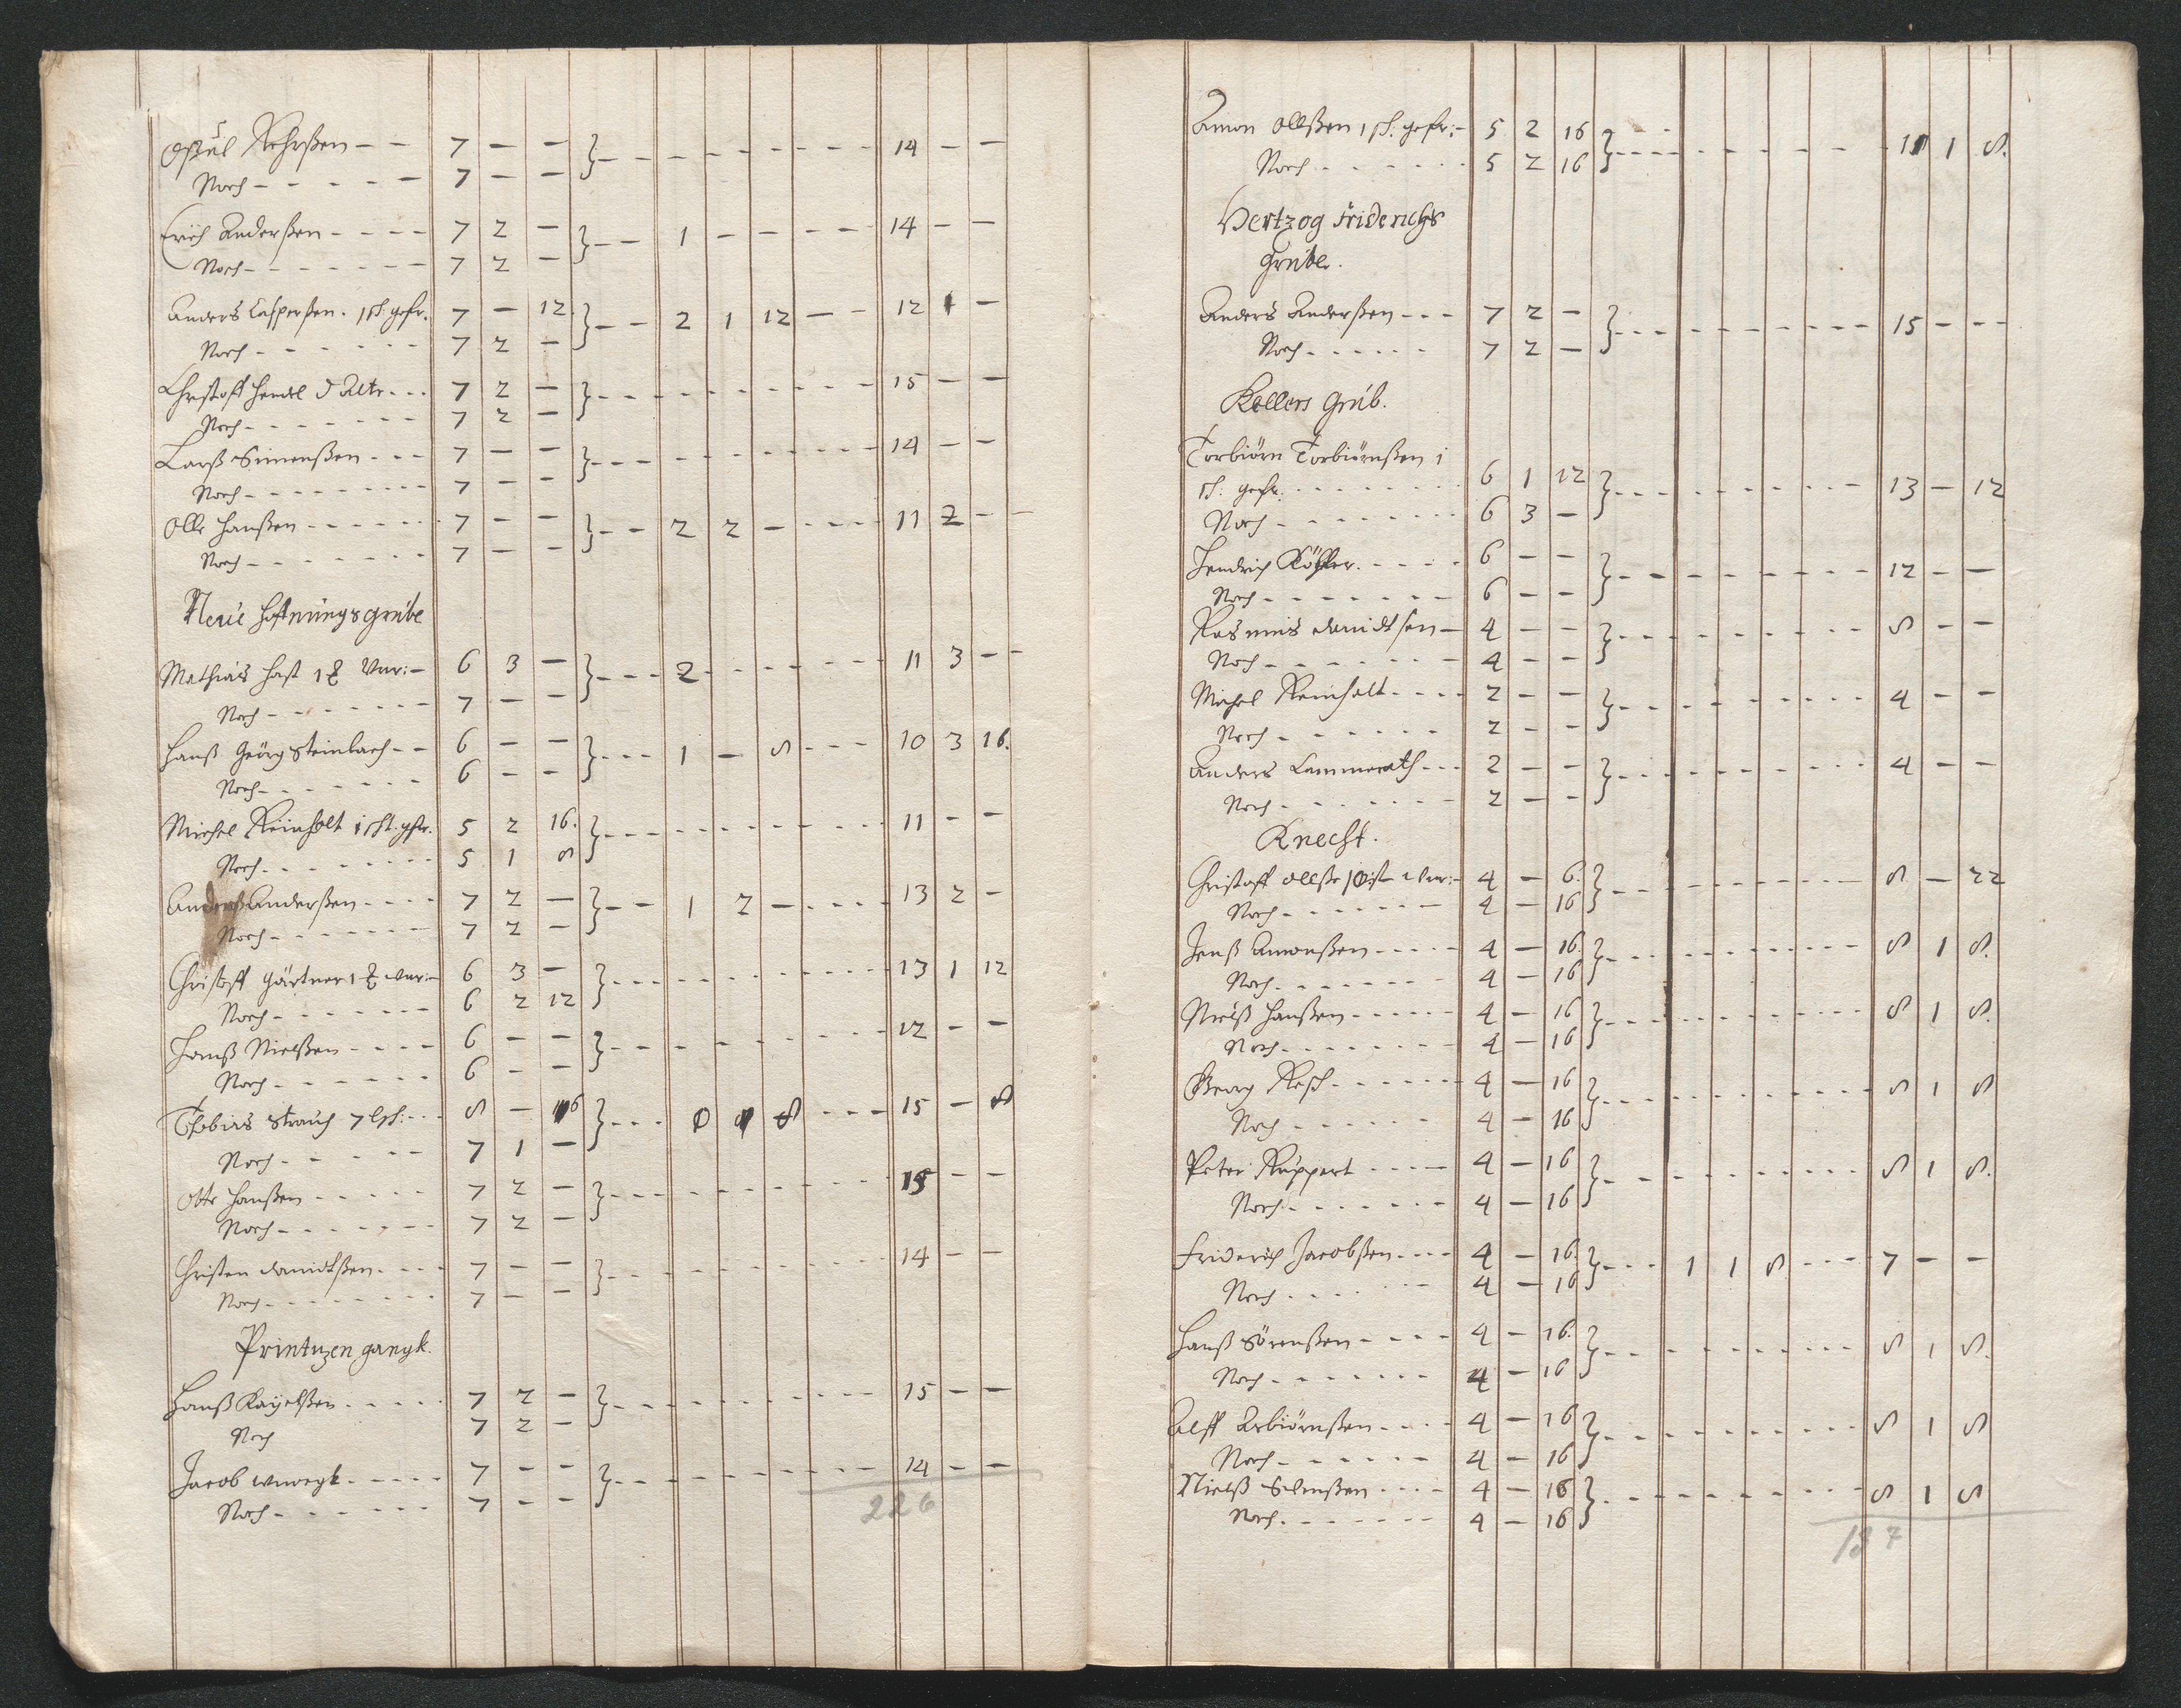 Oszul Rehrßen - - 7 - - } - - - 14 - -
Noch - - - - - 7 - -
Erich Anderßen - - - - 7 2 - } - - 1 - - - 14 - -
Noch - - - - - - 7 2 -
Anders Casperßen. 1 sch. gefr. 7 - 12. } - - 2 1 12 - - 12 1 -
Noch - - - - - - 7 2 -
Christoff Hendel d Altr - - - 7 2 - } - - - 15 - -
Noch - - - - - - 7 2 -
Larß Simenßen - - - 7 - - } - - - 14 - -
Noch - - - - - - - 7 - -
Olle Hanßen - - - - - - 7 - - } - - 2 2 - - - - 11 2 - -
Noch - - - - - - 7 - -
Neue Hoffnungs grube
Mathias Hast 1 Vnr: - 6 3 - } - - - 2 - - - 11 3 - -
Noch - - - - - - 7 - -
Hanß Georg Steinbach - - 6 - - } - - - 1 - 8 - - - 10 3 16.
Noch - - - - - - 6 - -
Michel Reinholt 1 scht. gfr. 5 2 16. } - - - 11 - -
Noch - - - - - - 5 1 8
Anderß Anderßen - - - - 7 2 - } - - 1 2 - - - - 13 2 -
Noch - - - - - - 7 2 -
Christoff Gärtner 1 vnr: - 6 3 - } - - - 13 1 12
Noch - - - - - - 6 2 12
Hanß Nielßen - - - - 6 - - } - - - 12 - -
Noch - - - - - - 6 - -
Thobias Strauch 7 lsch: - - 8 - 16 } - - - 0 8 - - - 15 - 8
Noch - - - - - 7 1 -
Otte Hanßen - - - - - 7 2 - } - - - 15 - -
Noch - - - - - - 7 2 -
Christen Davidtßen - - - - 7 - - } - - - 14 - -
Noch - - - - - - - 7 - -
Printzen gangk.
Hanß Kayelßen - - - - - 7 2 - } - - - 15 - -
Noch 7 2 -
Jacob - - - - - 7 - - } - - - 14 - -
Noch - - - - - - 7 - -
226
Amon Ollßen 1 sch: gefr: - 5 2 16 } - - - 11 1 8.
Noch - - - - - - 5 2 16
Hertzog Friderichs
Grube.
Anders Anderßen - - - 7 2 - } - - - 15 - - -
Noch - - - - - 7 2 -
Kellers Grub.
Torbiörn Torbiörnßen 1
sch: gefr. - - - - - - 6 1 12 } - - - 13 - 12
Noch - - - - - - - 6 3 -
Hendrich Köhler. - - - - 6 - - } - - - 12 - -
Noch - - - - - - - 6 - -
Rasmus Davidtsen - 4 - - } - - - 8 - -
Noch - - - - - - - 4 - -
Michel Reinholt - - - - 2 - - } - - - 4 - -
Noch - - - - - - 2 - -
Anders Lammerath - - - 2 - - } - - - 4 - -
Noch - - - - - - 2 - -
Knecht.
Christoff Ollße vnr: - 4 - 6. } - - - 8 - 22
Noch - - - - - - - 4 - 16
Jenß Amonßen - - - - - 4 - 16. } - - - 8 1 8.
Noch - - - - - - - 4 - 16
Nielß Hanßen - - - - - - 4 - 16 } - - - 8 1 8.
Noch - - - - - - - 4 - 16
Georg Resch - - - - - - 4 - 16 } - - - 8 1 8
Noch - - - - - - 4 - 16
Peter Ruppert - - - - 4 - 16 } - - - 8 1 8.
Noch - - - - - - 4 - 16
Friderich Jacobßen - - - - 4 - 16. } - - - 1 1 8 - - - 7 - -
Noch - - - - - - 4 - 16
Hanß Sörenßen - - - - 4 - 16. } - - - 8 1 8.
Noch - - - - - - 4 - 16
Alff Arbiörnßen - - - - 4 - 16 } - - - 8 1 8
Noch - - - - - - 4 - 16
Nielß - - - - 4 - 16 } - - - 8 1 8
Noch - - - - - - - 4 - 16
187